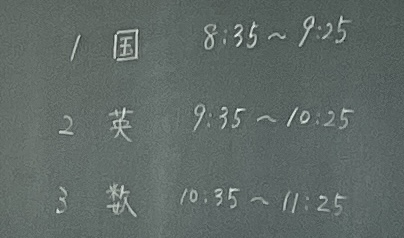 1 国 8:35～9:25
2 英 9:35～10:25
3 数 10:35～11:25